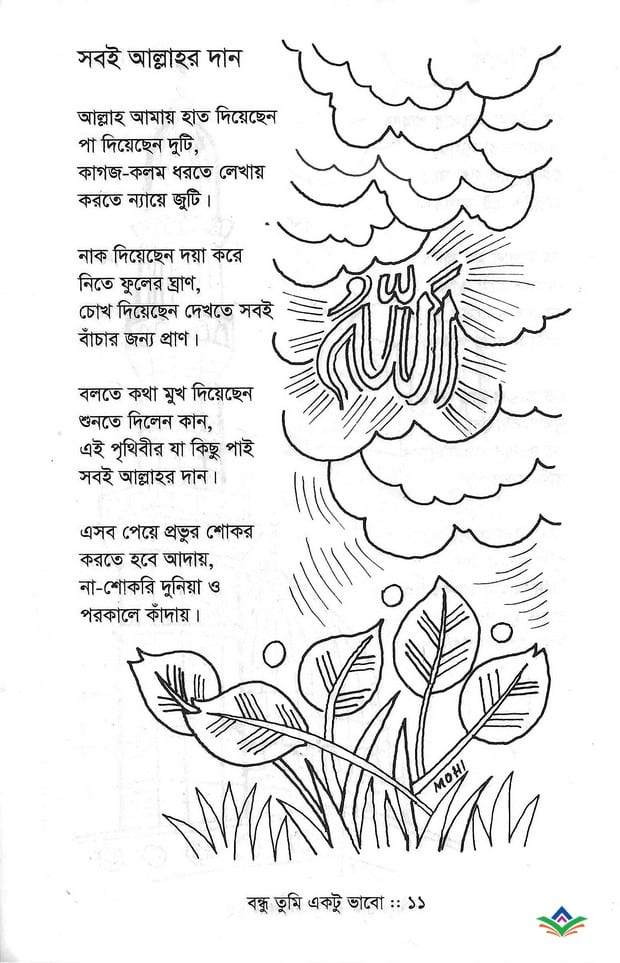 সবই আল্লাহর দান
আল্লাহ আমায় হাত দিয়েছেন
পা দিয়েছেন দুটি,
কাগজ-কলম ধরতে লেখায়
করতে ন্যায়ে জুটি।
নাক দিয়েছেন দয়া করে
নিতে ফুলের ঘ্রাণ,
চোখ দিয়েছেন দেখতে সবই
বাঁচার জন্য প্রাণ।
বলতে কথা মুখ দিয়েছেন
শুনতে দিলেন কান,
এই পৃথিবীর যা কিছু পাই
সবই আল্লাহর দান।
এসব পেয়ে প্রভুর শোকর
করতে হবে আদায়,
না-শোকরি দুনিয়া ও
পরকালে কাঁদায়।
الله
MOHI
বন্ধু তুমি একটু ভাবো :: ১১